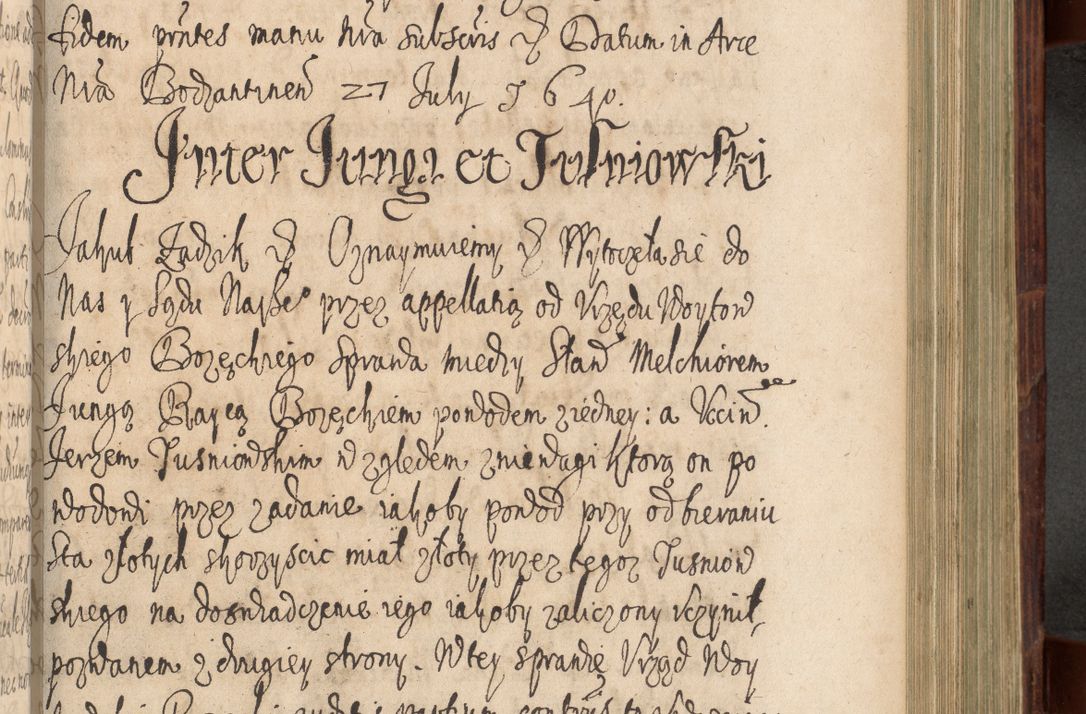 fidem prñtes manu nrã subscris etc. Datum in Arce
Nrã Bodzantineñ 27 July 1640.
Inter Jungi et Tusniowski
Jakub Zadzik etc. Oznaymuiemy etc. Wytoczyła się do
Nas y Sądu Naszego przez appellatią od Urzędu Woytow
skiego Bozęckiego Sprawa miedzy Sław Melchiorem
Jungą Raycą Bozęckiem powodem z iedney: a Uccin
Jerzem Tusniowskim względem zniewagi ktorą on po
wodowi przez zadanie iakoby powod przy odbieraniu
sta złotych skorzyscic miał złoty przez tegoz Tusniow
skiego na doswiadczenie iego iakoby zaliczony uczynił,
pozwanem z drugiey strony. W tey sprawie Urząd Woy